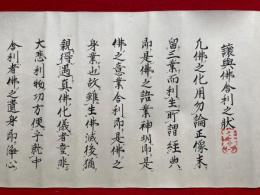 譲與佛舎利之状
凡佛之化用勿論正像末
留三業而利生所謂経典
即是佛之語業神明即是
佛之意業舎利即是佛之
身業也故雖生佛滅後猶
親得遇真佛化儀者豈非
大悲利物功方便乎就中
舎利者佛之遺身即浄心